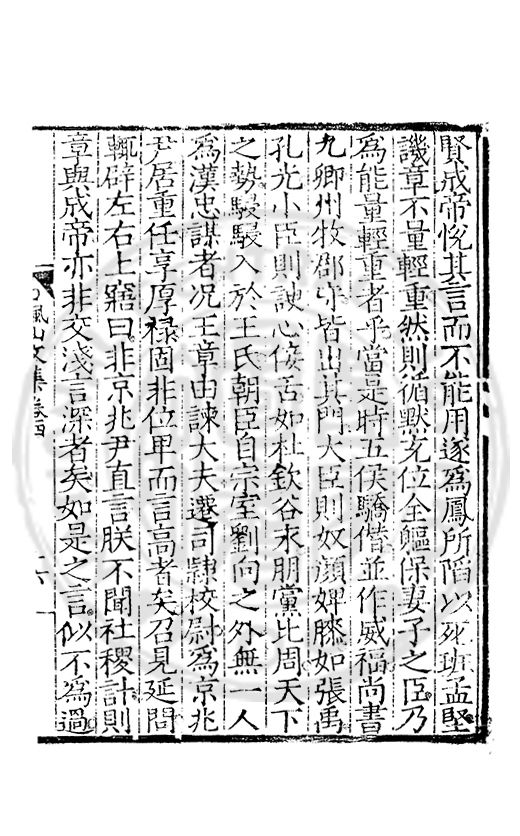 賢成帝悅其言而不能用遂爲鳳所陷以死班孟堅
譏章不量輕重然則循默充位全軀保妻子之臣乃
爲能量輕重者乎當是時五侯驕僣並作威福尚書
九卿州牧郡守皆出其門大臣則奴顏婢膝如張禹
孔光小臣則諛心佞舌如杜欽谷永朋黨比周天下
之勢駸駸入於王氏朝臣自宗室劉向之外無一人
爲漢忠謀者况王章由諫大夫遷司隷校尉爲京兆
尹居重任享厚祿固非位卑而言高者矣召見延問
輒辟左右上寤曰非京兆尹直言朕不聞社稷計則
章與成帝亦非交淺言深者矣如是之言似不爲過
風山文集卷四